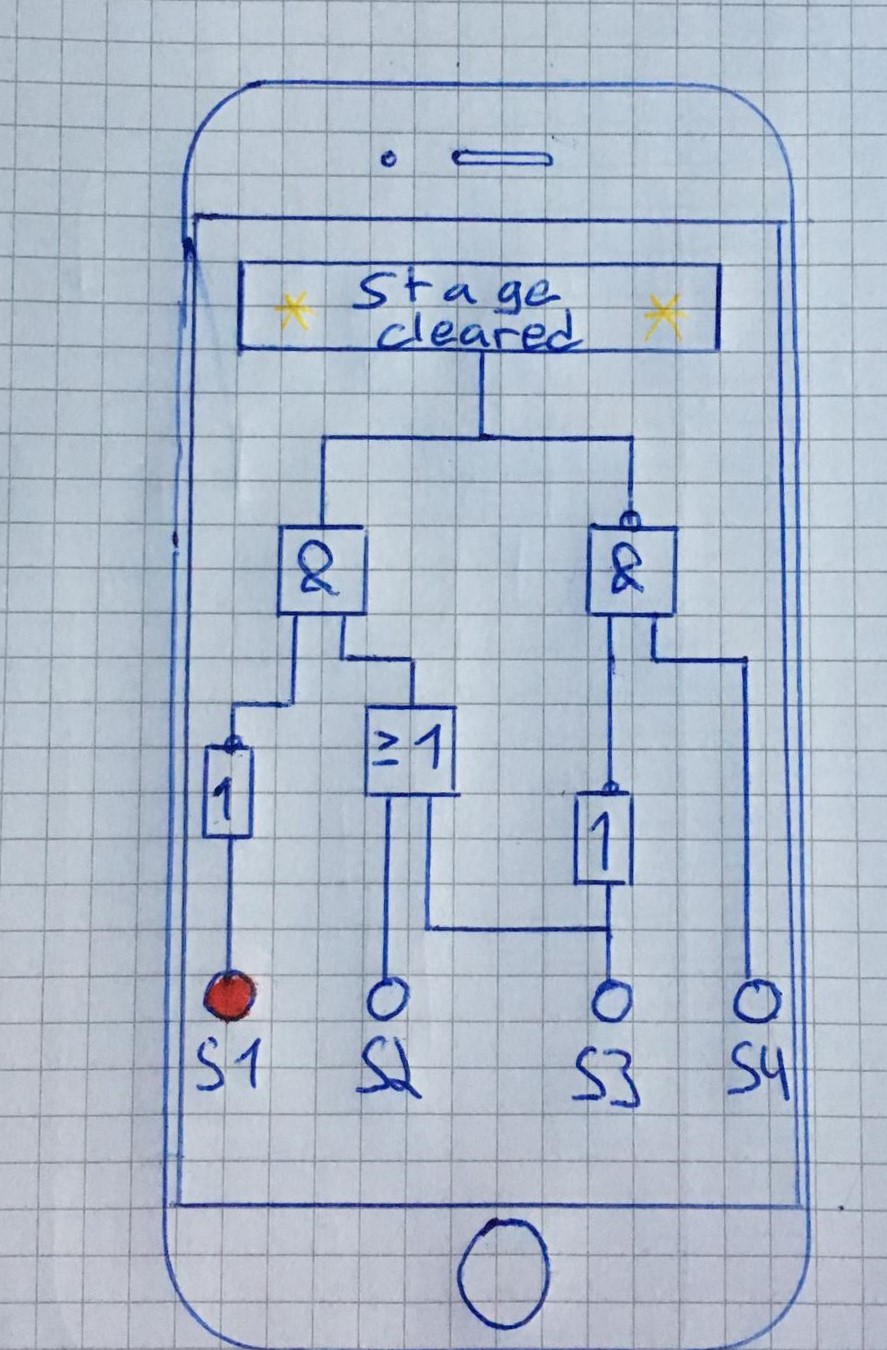 Stage
cleared
&
&
≥1
1
1
S1
S2
S3
S4